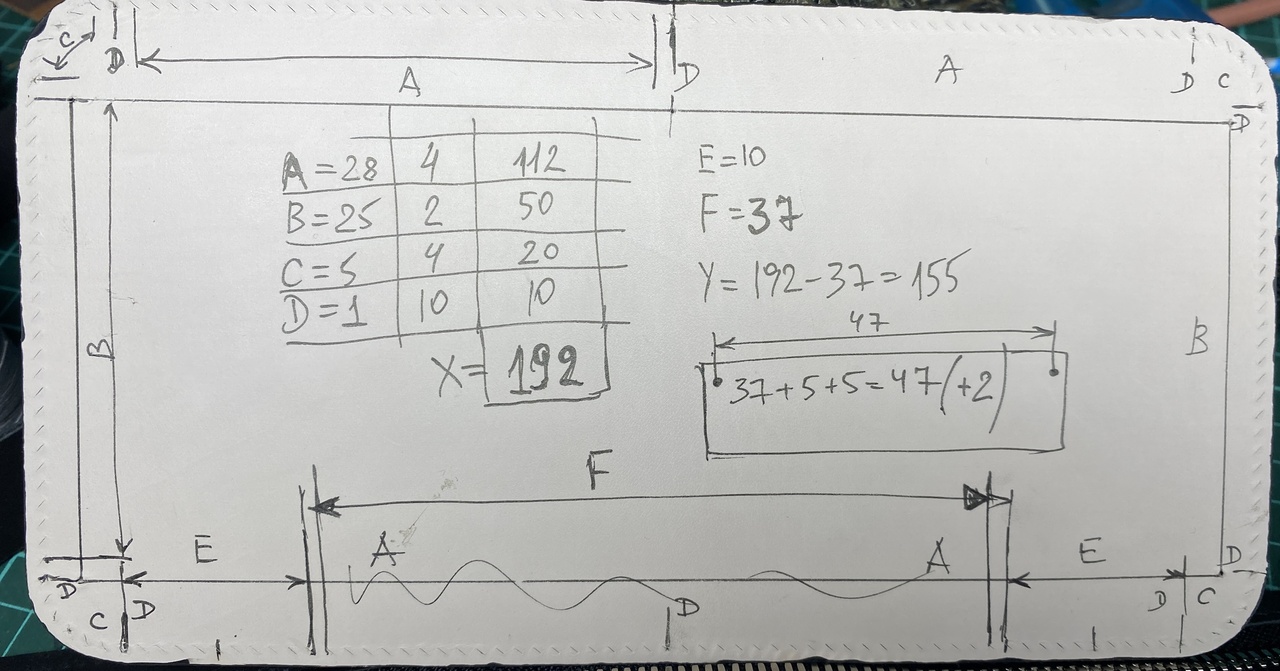 C
D
A
D
A
D
C
D
A=28 4 112
B=25 2 50
C=5 4 20
D=1 10 10
X= 192
E=10
F=37
Y=192-37=155
47
37+5+5=47(+2)
B
B
F
E
A
A
E
D
D
C
D
D
D
C